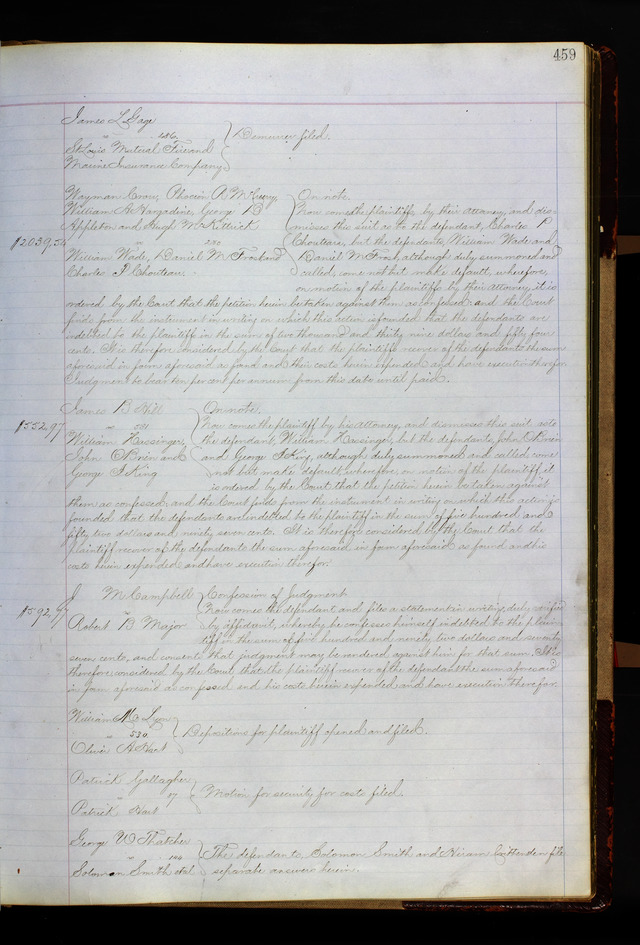 459
James L Gage
" Demurrer filed.
St Louis Mutual Fire and
Marine Insurance Company
Wayman Crow, Phocion R McCreery, On note.
William A Hargadine, George D Now come the plaintiffs, by their Attorney, and dis-
Appleton and Hugh McKittrick misses this suit as to the defendant, Charles P
$2039.54 Chouteau, but the defendants, William Wade and
William Wade, Daniel M Frost and Daniel M Frost, although duly summoned and
Charles P Chouteau. called, come not but make default, wherefore,
on motion of the plaintiffs by their Attorney, it is
ordered by the Court that the petition herein be taken against them as confessed: and the Court
finds from the instrument in writing on which this action is founded, that the defendants are
indebted to the plaintiff in the sum of two thousand and thirty nine dollars and fifty four
cents. It is therefore considered by the Court that the plaintiffs recover of the defendants the sum
aforesaid in form aforesaid as found and their costs herein expended and have execution therefor.
Judgment to bear ten per cent per annum from this date until paid.
James B Hill On note.
$552.97 " 031 Now comes the plaintiff by his Attorney, and dismisses this suit as to
William Hessinger, the defendant, William Hessinger, but the defendants, John O'Brien
John O'Brien and and George I King, although duly summoned and called, come
George I King not but make default, wherefore on motion of the plaintiff, it
is ordered by the Court, that the petition herein be taken against
them as confessed, and the Court finds from the instrument in writing on which this action is
founded that the defendants are indebted to the plaintiff in the sum of five hundred and
fifty two dollars and ninety seven cents. It is therefore considered by the Court that the
plaintiff recover of the defendants the sum aforesaid in form aforesaid as found and his
costs herein expended and have execution therefor.
J M Campbell Confession of Judgment
$592.77 " Now comes the defendant and files a statement in writing duly verified
Robert B Major by affidavit, whereby he confesses himself indebted to the plain-
tiff in the sum of five hundred and ninety two dollars and seventy
seven cents, and consents that judgment may be rendered against him for that sum. It is
therefore considered by the Court, that the plaintiff recover of the defendant the sum aforesaid
in form aforesaid as confessed and his costs herein expended and have execution therefor.
William M Lyon
" 530 Depositions for plaintiff opened and filed.
Oliver A Hart
Patrick Gallagher
" 17 Motion for security for costs filed.
Patrick Hart
George W Thatcher
" The defendants, Solomon Smith and Hiram Crittenden file
Solomon Smith et al separate answers herein.